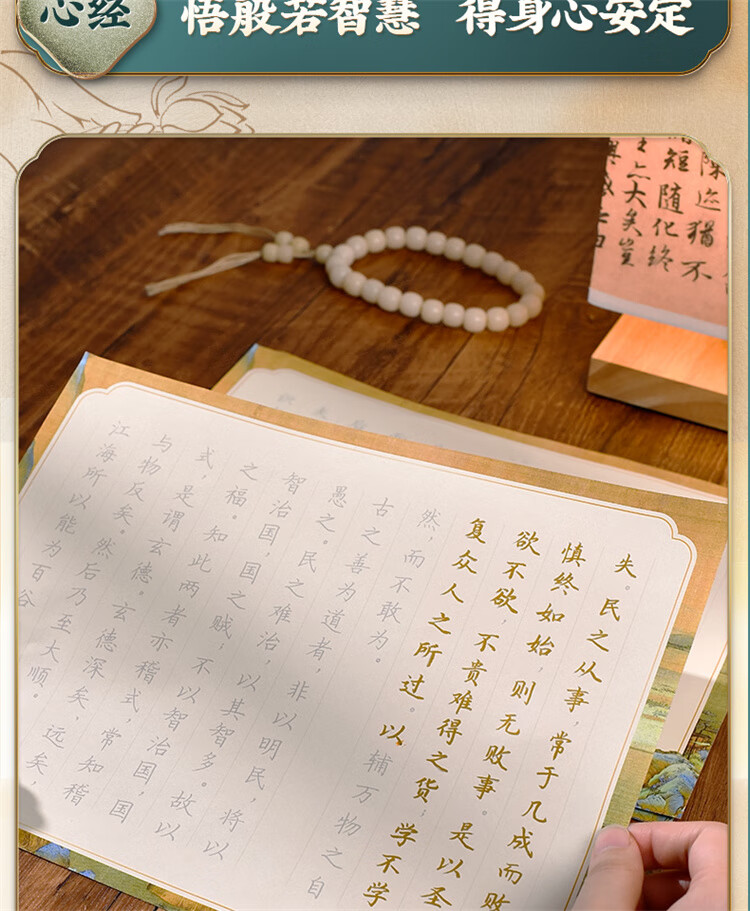 心经
悟般若智慧 得身心安定
迹犹不
短随化终
大矣岂
失。民之从事，常于几成而败
慎终如始，则无败事。是以圣
欲不欲，不贵难得之货；学不学
复众人之所过。以辅万物之自
然，而不敢为。
古之善为道者，非以明民，将以
愚之。民之难治，以其智多。故以
智治国，国之贼；不以智治国，国
之福。知此两者亦稽式，常知稽
式，是谓玄德。玄德深矣，远矣，
与物反矣。然后乃至大顺。
江海所以能为百谷